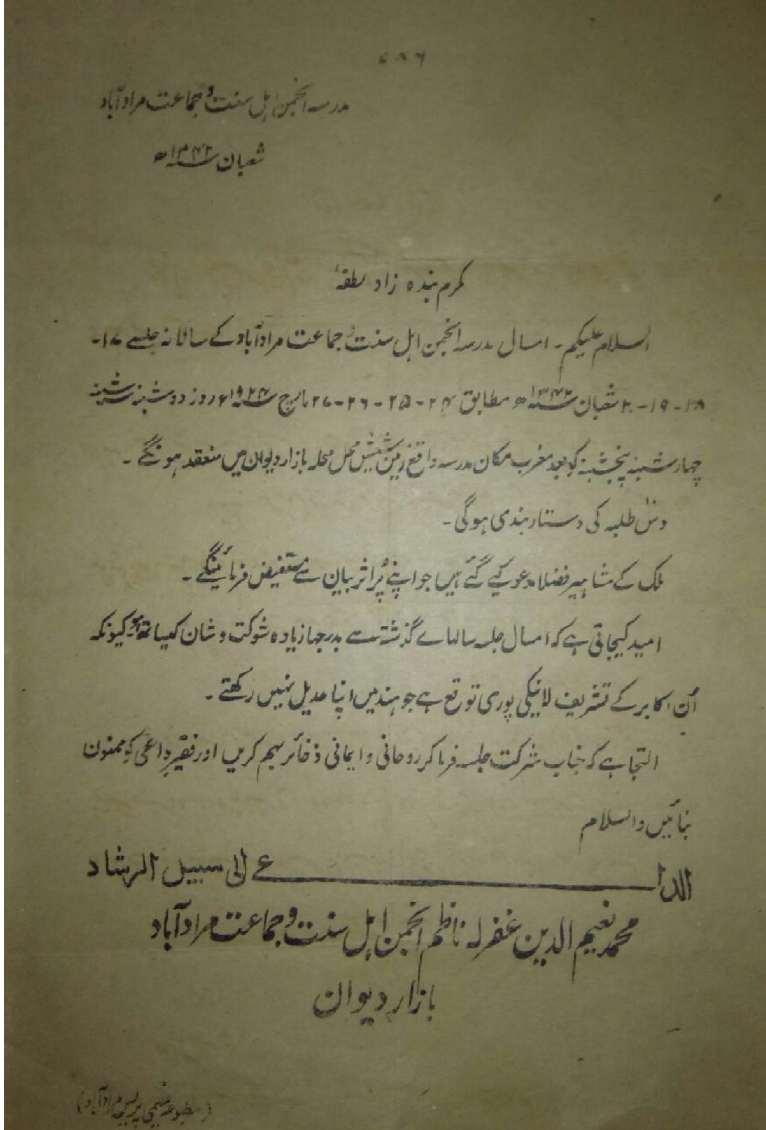 ۷۸۶
مدرسہ انجمن اہل سنت و جماعت مرادآباد
شعبان ۱۳۴۲ھ
کرم بندہ زاد لطفہٗ
السلام علیکم۔ امسال مدرسہ انجمن اہل سنت و جماعت مرادآباد کے سالانہ جلسے ۱۷۔
۱۸-۱۹-۲۰ شعبان ۱۳۴۲ھ مطابق ۲۴-۲۵-۲۶-۲۷ مارچ ۱۹۲۴ء روز دوشنبہ سہ شنبہ
چہارشنبہ پنجشنبہ کو بعد مغرب مکان مدرسہ واقع زمین شیش محل محلہ بازار دیوان میں منعقد ہونگے۔
دس طلبہ کی دستاربندی ہوگی۔
ملک کے مشاہیر فضلا مدعو کیے گئے ہیں جو اپنے پُر اثر بیان سے مستفیض فرمائینگے۔
امید کیجاتی ہے کہ امسال جلسہ سالہاے گذشتہ سے بدرجہا زیادہ شوکت و شان کیساتھ ہو کیونکہ
اُن اکابر کے تشریف لانیکی پوری توقع ہے جو ہند میں اپنا عدیل نہیں رکھتے۔
التجا ہے کہ جناب شرکت جلسہ فرما کر روحانی و ایمانی ذخائر بہم کریں اور فقیر داعی کو ممنون
بنائیں والسلام
الداعی الی سبیل الرشاد
محمد نعیم الدین غفرلہ ناظم انجمن اہل سنت و جماعت مرادآباد
بازار دیوان
(مطبوعہ نعیمی پریس مرادآباد)